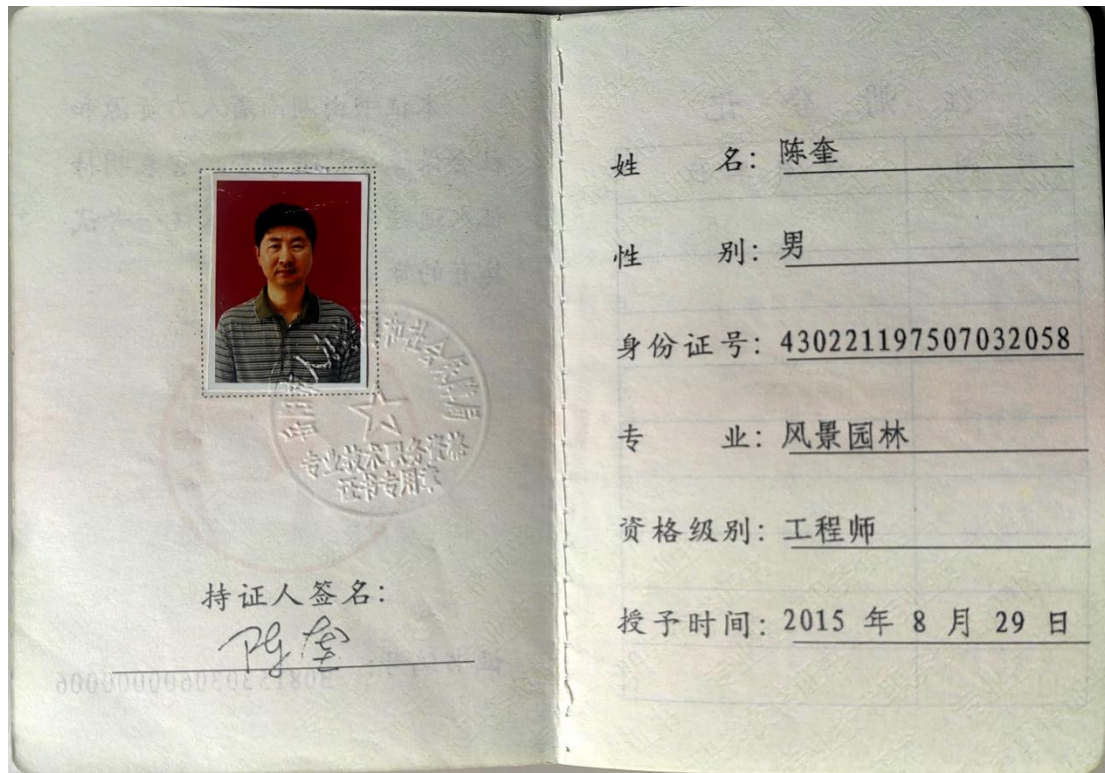 专业技术职务资格
证书专用章
持证人签名:
陈奎
姓 名: 陈奎
性 别: 男
身份证号: 430221197507032058
专 业: 风景园林
资格级别: 工程师
授予时间: 2015 年 8 月 29 日